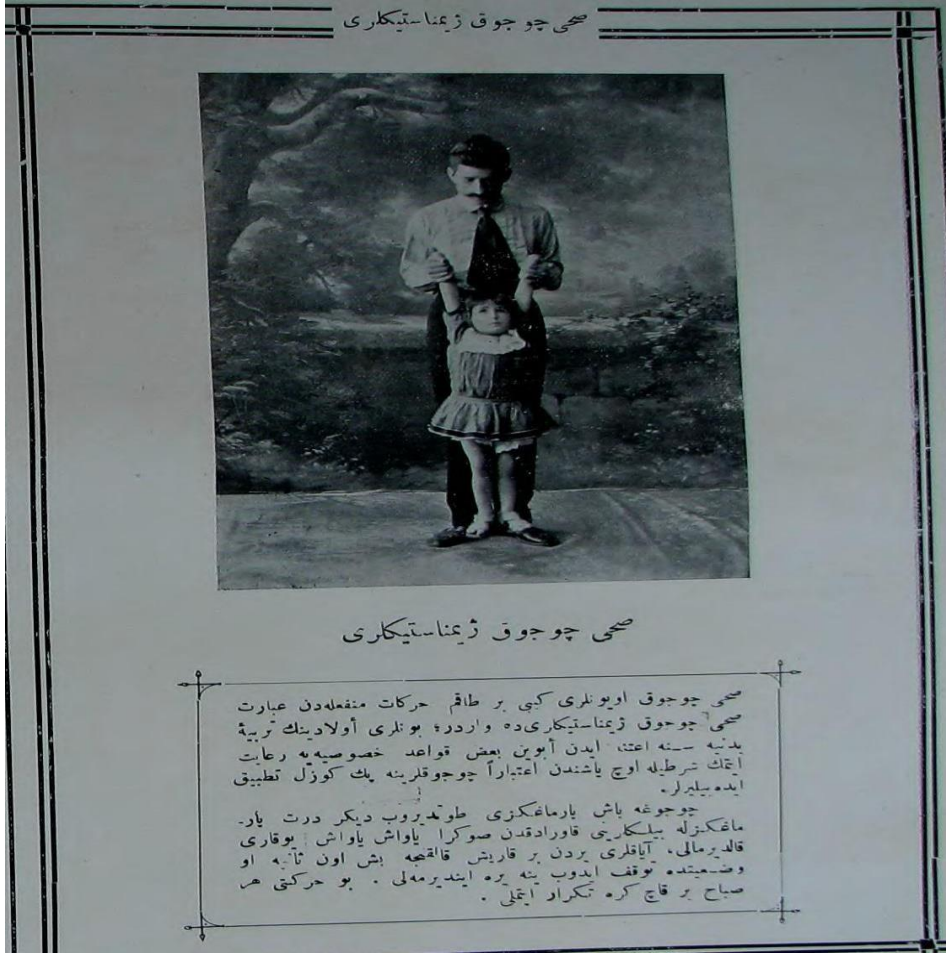 صحی چوجوق ژیمناستیکلری
صحی چوجوق ژیمناستیکلری
صحی چوجوق اویونلری کبی بر طاقم حرکات منفعله‌دن عبارت
صحی چوجوق ژیمناستیکلری‌ده واردر؛ بونلری أولادینك تربیهٔ
بدنیه سنه اعتنا ایدن أبوین بعض قواعد خصوصیه‌یه رعایت
ایتمك شرطیله اوچ یاشندن اعتباراً چوجوقلرینه پك کوزل تطبیق
ایده‌بیلیرلر.
چوجوغه باش پارماغکزی طوتدیروب دیکر درت پار-
ماغکزله بیلکلرینی قاورادقدن صوکرا یاواش یاواش یوقاری
قالدیرمالی، آیاقلری یردن بر قاریش قالقنجه بش اون ثانیه او
وضعیتده توقف ایدوب ینه یره ایندیرمه‌لی . بو حرکتی هر
صباح بر قاچ کره تکرار ایتملی .